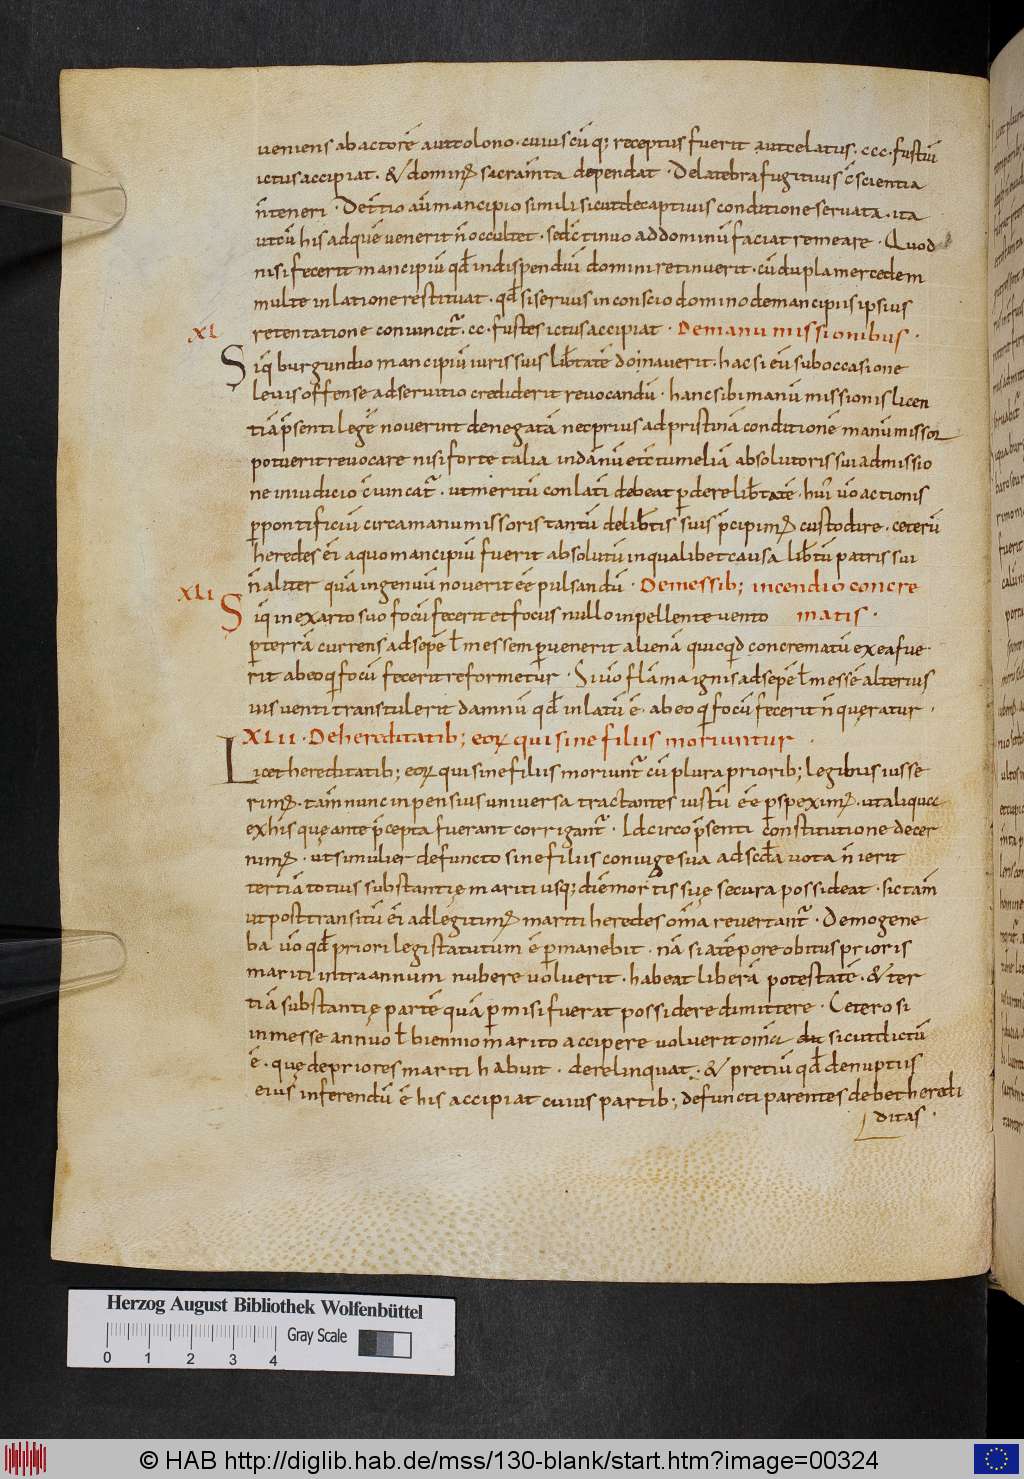 ueniens ab actorē aut colono · cuiuscūq; receptus fuerit aut celatus · ccc · fustiū
ictus accipiat · & dominꝰ sacramta dependat · De latebra fugitiuus c̄scientia
n̄ teneri · Detētio aūt mancipio simili sicut de captiuis conditione seruata · ita
ut cū his ad quē uenerit n̄ occultet · sed c̄tinuo ad dominū faciat remeare · Quod
nisi fecerit mancipiū qđ in dispendiū domini retinuerit · cū dupla mercedem
multe inlatione restituat · qđ si seruus inconscio domino de mancipiis ipsius
retentatione conuincit̄ · cc · fustes ictus accipiat · De manumissionibus ·
XL
Siq̄ burgundio mancipiū iuris suis lib̄tatē donauerit · hac si eū sub occasione
leuis offense ad seruitio crediderit reuocandū · hanc sibi manūmissionis licen
tiā p̄senti legē nouerint denegatā nec prius ad pristinā conditionē manūmissor
potuerit reuocare nisi forte talia in dānū et c̄tumeliā absolutoris sui admissio
ne in iudicio c̄uincat̄ · ut meritū conlati debeat ꝑdere lib̄tatē · hui' uo actionis
ꝑ pontificiū circa manumissoris tantū de lib̄tis suis p̄cipimꝰ custodire · ceterū
heredes ei a quo mancipiū fuerit absolutū in qualibet causa lib̄tū patris sui
n̄ aliter quā ingenuū nouerit ēē pulsandū · De messib; incendio concre
XLI
Siq̄ in exarto suo focū fecerit et focus nullo inpellente uento matis ·
ꝑ terrā currens ad sepē ł messem ꝑuenerit alienā quicqid concrematū ex ea fue
rit ab eo q̄ focū fecerit reformetur · Si uo flāma ignis ad sepē ł messē alterius
uis uenti transtulerit damnū qđ inlatū ē · ab eo q̄ focū fecerit n̄ quęratur ·
XLII · De hereditatib; eoꝝ qui sine filiis moriuntur ·
Licet hereditatib; eoꝝ qui sine filiis moriunt̄ cū plura priorib; legibus iusse
rimꝰ · tam nunc inpensius uniuersa tractantes iustū ēē ꝑspeximꝰ · ut aliqua
ex his quę ante p̄cepta fuerant corrigant̄ · Idcirco p̄senti constitutione decer
nimꝰ · ut si mulier defuncto sine filiis coniuge suo ad scđa uota n̄ ierit
tertiā totius substantię mariti usq; diē mortis suę secura possideat · sic tam
ut post transitū ei ad legitimꝰ mariti heredes om̄a reuertant̄ · De mogene
ba uo qđ priori legi statutum ē ꝑmanebit · nā si a tēpore obitus prioris
mariti intra annum nubere uoluerit · habeat liberā potestatē · & ter
tiā substantię partē quā ꝑmisi fuerat possidere dimittere · Cetero si
in messe annuo ł biennio marito accipere uoluerit om̄a sicut dictū
ē · quę de priores mariti habuit · derelinquat · & pretiū qđ de nuptiis
eius inferendū ē his accipiat cuius partib; defuncti parentes debet heredi
ditas ·
Herzog August Bibliothek Wolfenbüttel
0 1 2 3 4 Gray Scale
© HAB http://diglib.hab.de/mss/130-blank/start.htm?image=00324